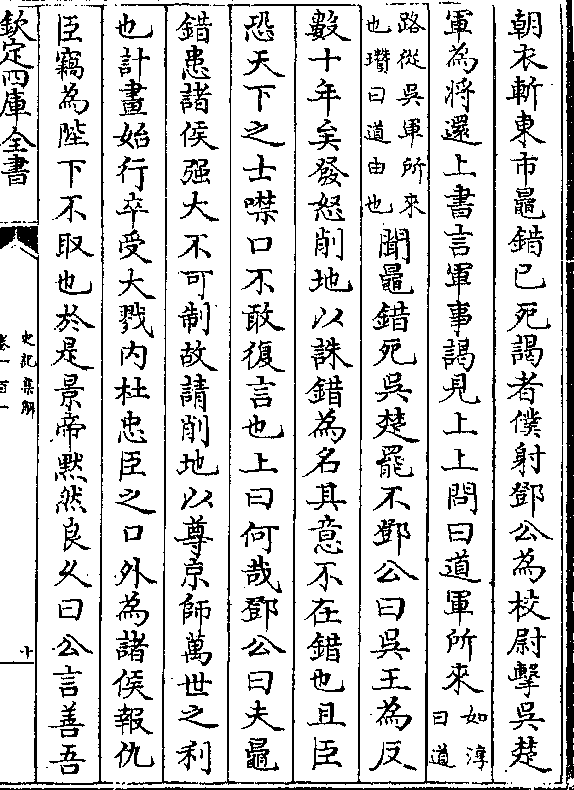 朝衣斬東市鼂錯已死謁者僕射鄧公為校尉擊吳楚
軍為將還上書言軍事謁見上上問曰道軍所來如淳曰道
路從吳軍所來也瓚曰道由也聞鼂錯死吳楚罷不鄧公曰吳王為反
數十年矣發怒削地以誅錯為名其意不在錯也且臣
恐天下之士噤口不敢復言也上曰何哉鄧公曰夫鼂
錯患諸侯强大不可制故請削地以尊京師萬世之利
也計畫始行卒受大戮内杜忠臣之口外為諸侯報仇
臣竊為陛下不取也於是景帝黙然良久曰公言善吾
欽定四庫全書
史記集解
卷一百一
十